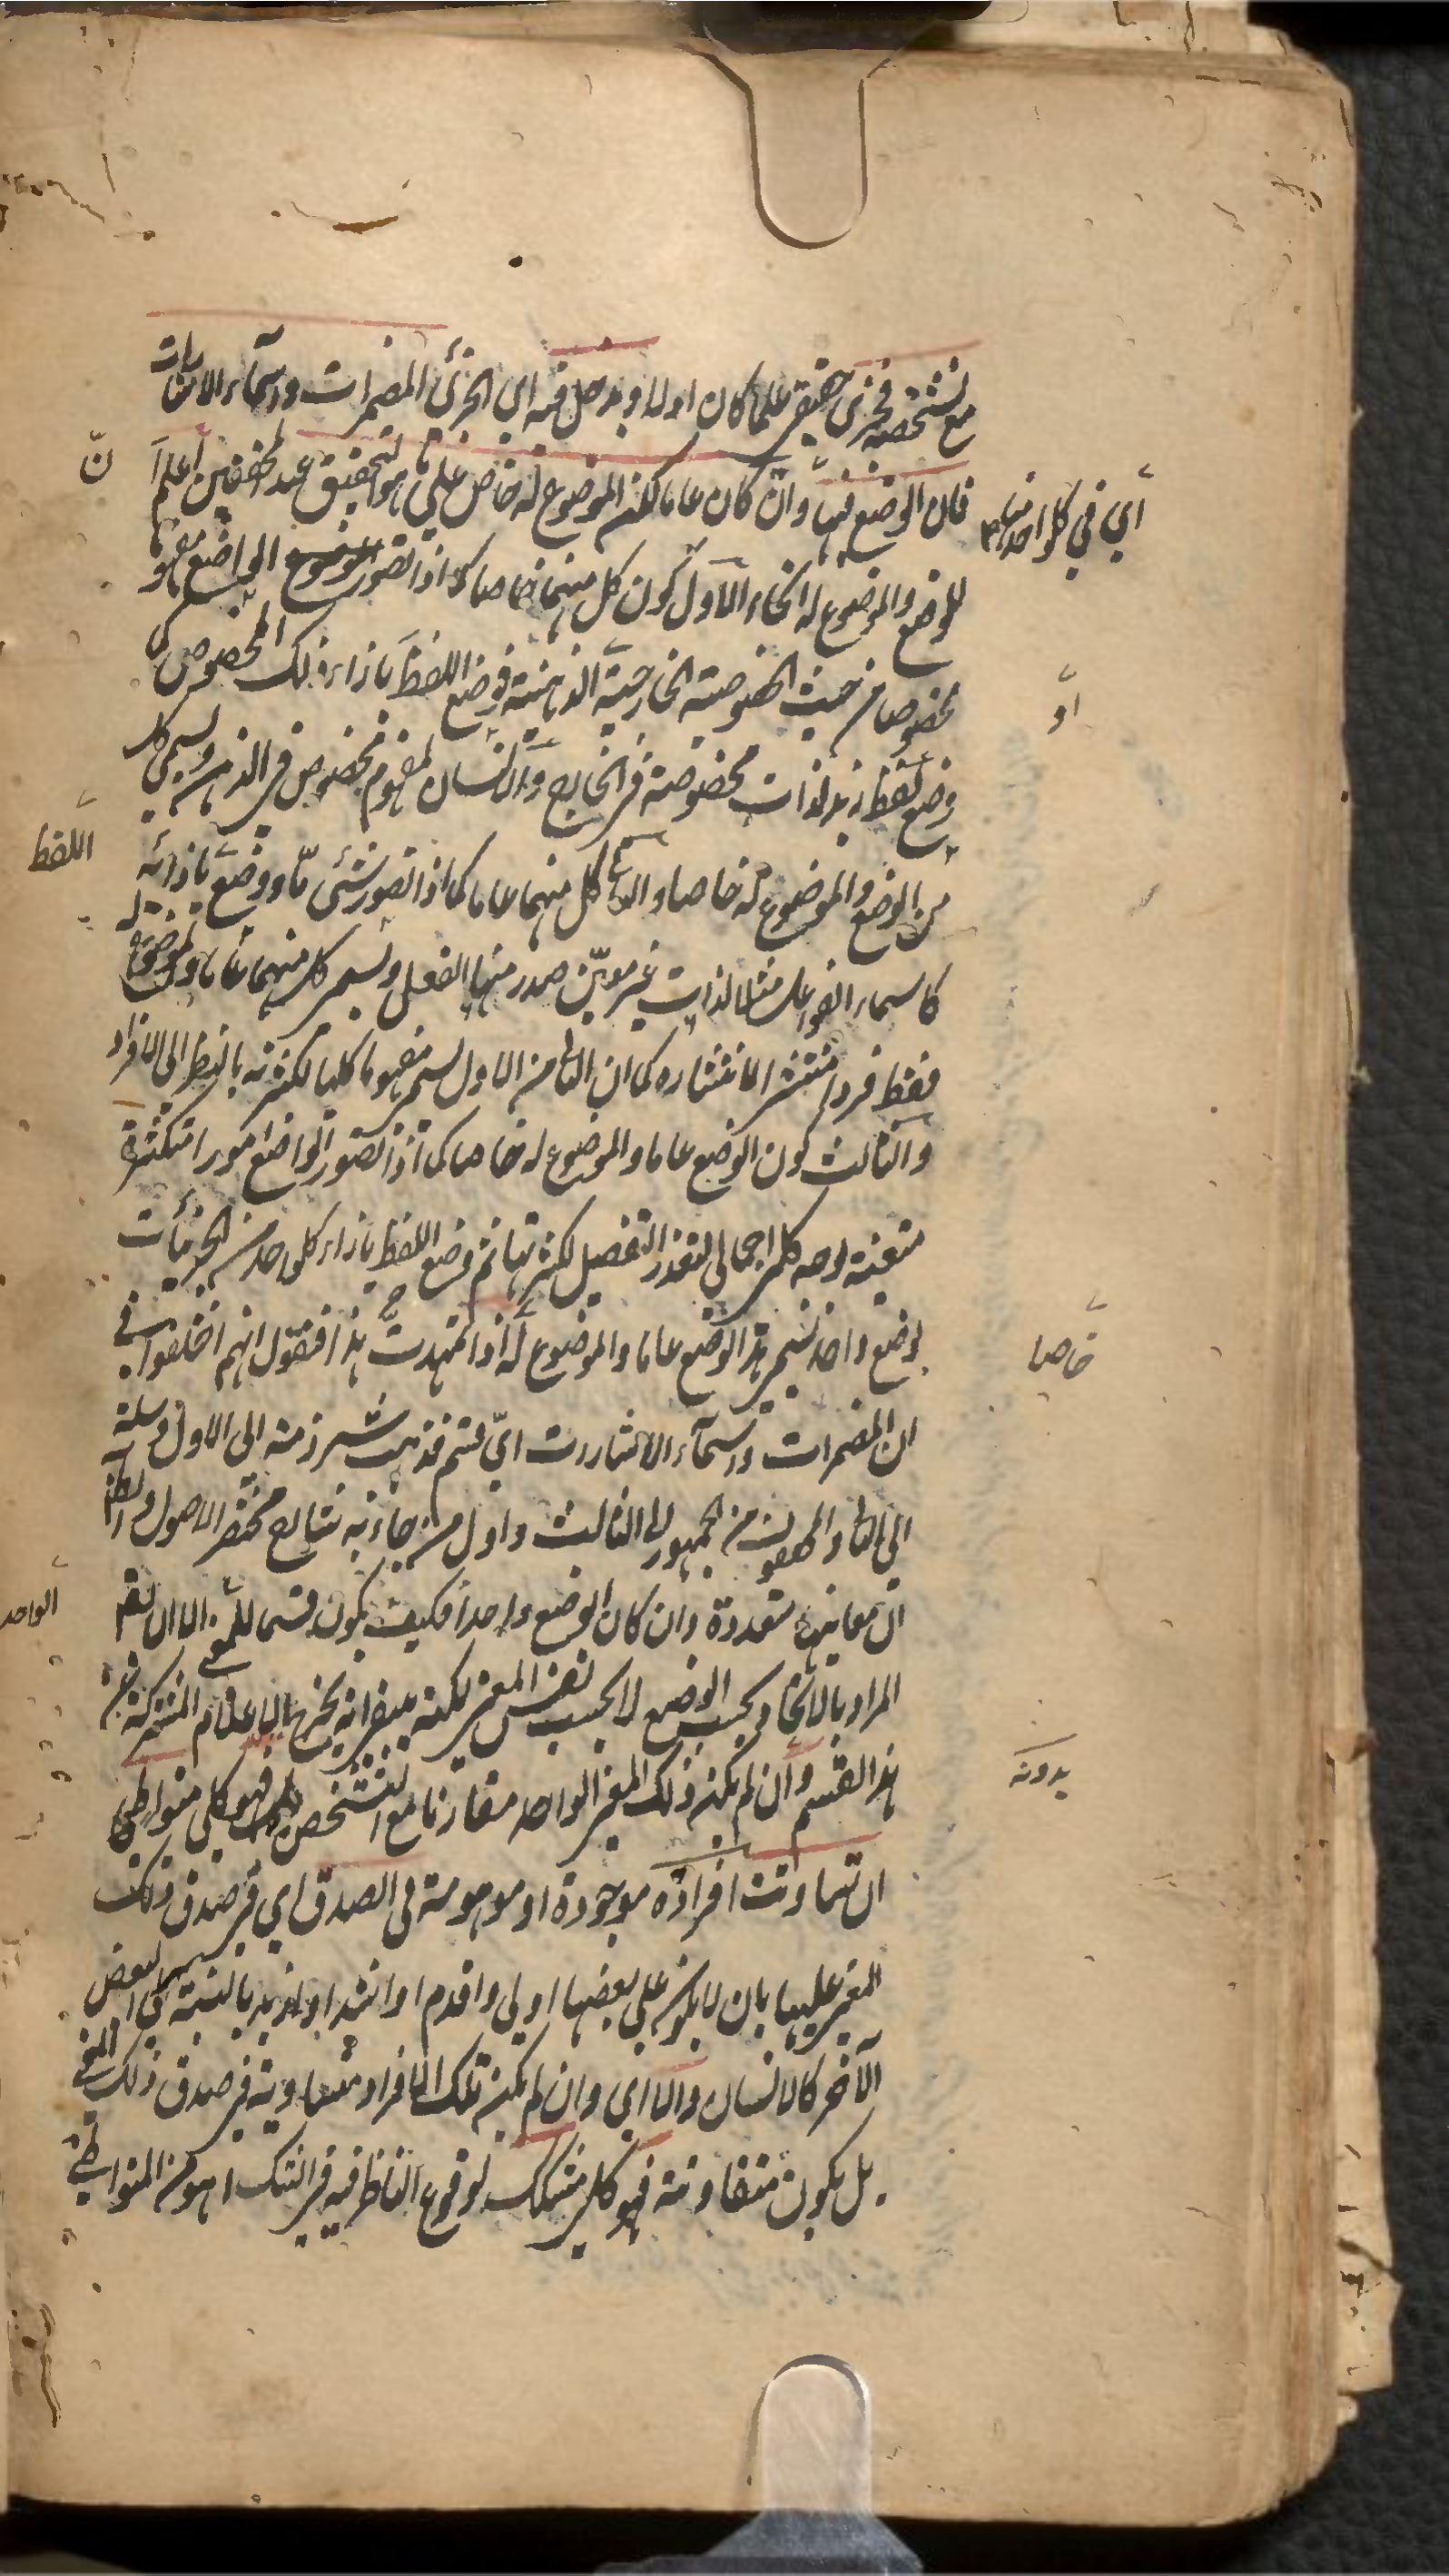 مع تشخصه فجزئي حقيقي علما كان اولا ويدخل فيه اي الجزئي المضمرات واسماء الاشارات
فان الوضع فيها وان كان عاما لكن الموضوع له خاص على ما هو التحقيق عند المحققين اعلم ان
اي في كل واحد منهما
للوضع والموضوع له انحاء الاول كون كل منهما خاصا كما اذا تصور الواضع مفهوما
مخصوصا من حيث الخصوصية الخارجية او الذهنية فوضع اللفظ بازاء ذلك المخصوص كما
وضع لفظ زيد لذات مخصوصة في الخارج والانسان لمفهوم مخصوص في الذهن ويسمى كل
من الوضع والموضوع له خاصا والثاني كل منهما عاما كما اذا تصور شئ ما ووضع بازائه اللفظ
كاسماء الفواعل مثلا لذات غير معين صدر منها الفعل ويسمى كل منهما عاما والموضوع له
فقط فردا منتشرا لانتشاره كما ان الثاني من الاول يسمى مفهوما كليا لكثرته بالنظر الى الافراد
والثالث كون الوضع عاما والموضوع له خاصا كما اذا تصور الواضع امورا متكثرة
متعينة بوجه كلي اجمالي لتعذر التفصيل لكثرتها ثم وضع اللفظ بازاء كل واحد من الجزئيات
بوضع واحد فسمي هذا الوضع عاما والموضوع له خاصا اذا تمهدت هذا فنقول انهم اختلفوا في
ان المضمرات واسماء الاشارات اي قسم فذهب شرذمة الى الاول وسلة
الى الثاني والمحققون من الجمهور الى الثالث واول من جاء به شارح مختصر الاصول
ان معانيها متعددة وان كان الوضع واحدا فكيف يكون قسما للمعنى الواحد الا ان يقم
المراد بالاتحاد بحسب الوضع لا بحسب نفس المعنى لكنه يبقى انه يخرج الاعلام المشتركة من
هذا القسم وان لم يكن ذلك المعنى الواحد مقارنا مع التشخص بدونه فهو كلي متواطئ
ان تساوت افراده موجودة او موهومة في الصدق اي في صدق ذلك
المعنى عليها بان لا يكون على بعضها اولى واقدم او اشد او ازيد بالنسبة الى البعض
الآخر كالانسان والا اي وان لم يكن تلك الافراد متساوية في صدق ذلك المعنى
بل يكون متفاوتة فهو كلي مشكك لوقوع الناظر فيه في الشك اهو من المتواطئ